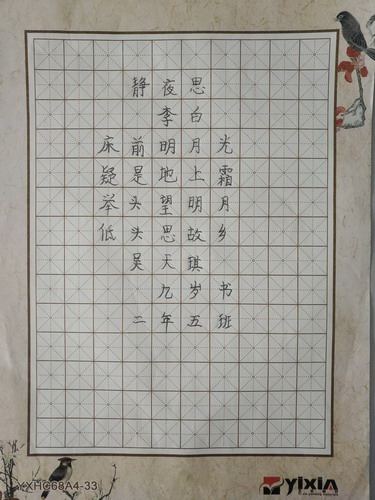 静夜思
李白
床前明月光
疑是地上霜
举头望明月
低头思故乡
吴天琪
九岁书
二年五班
YXHC68A4-33
yixin